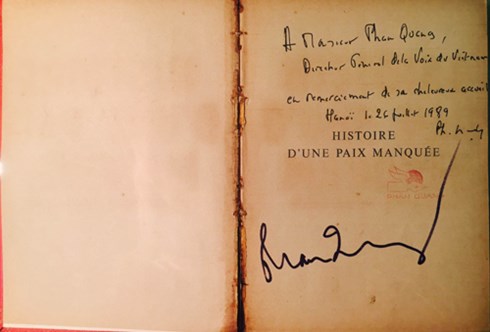 A Monsieur Phan Quang,
Directeur Général de la Voix du Viêtnam
en remerciement de sa chaleureux accueil
Hanoï le 26 juillet 1989
Ph.
HISTOIRE
D'UNE PAIX MANQUÉE